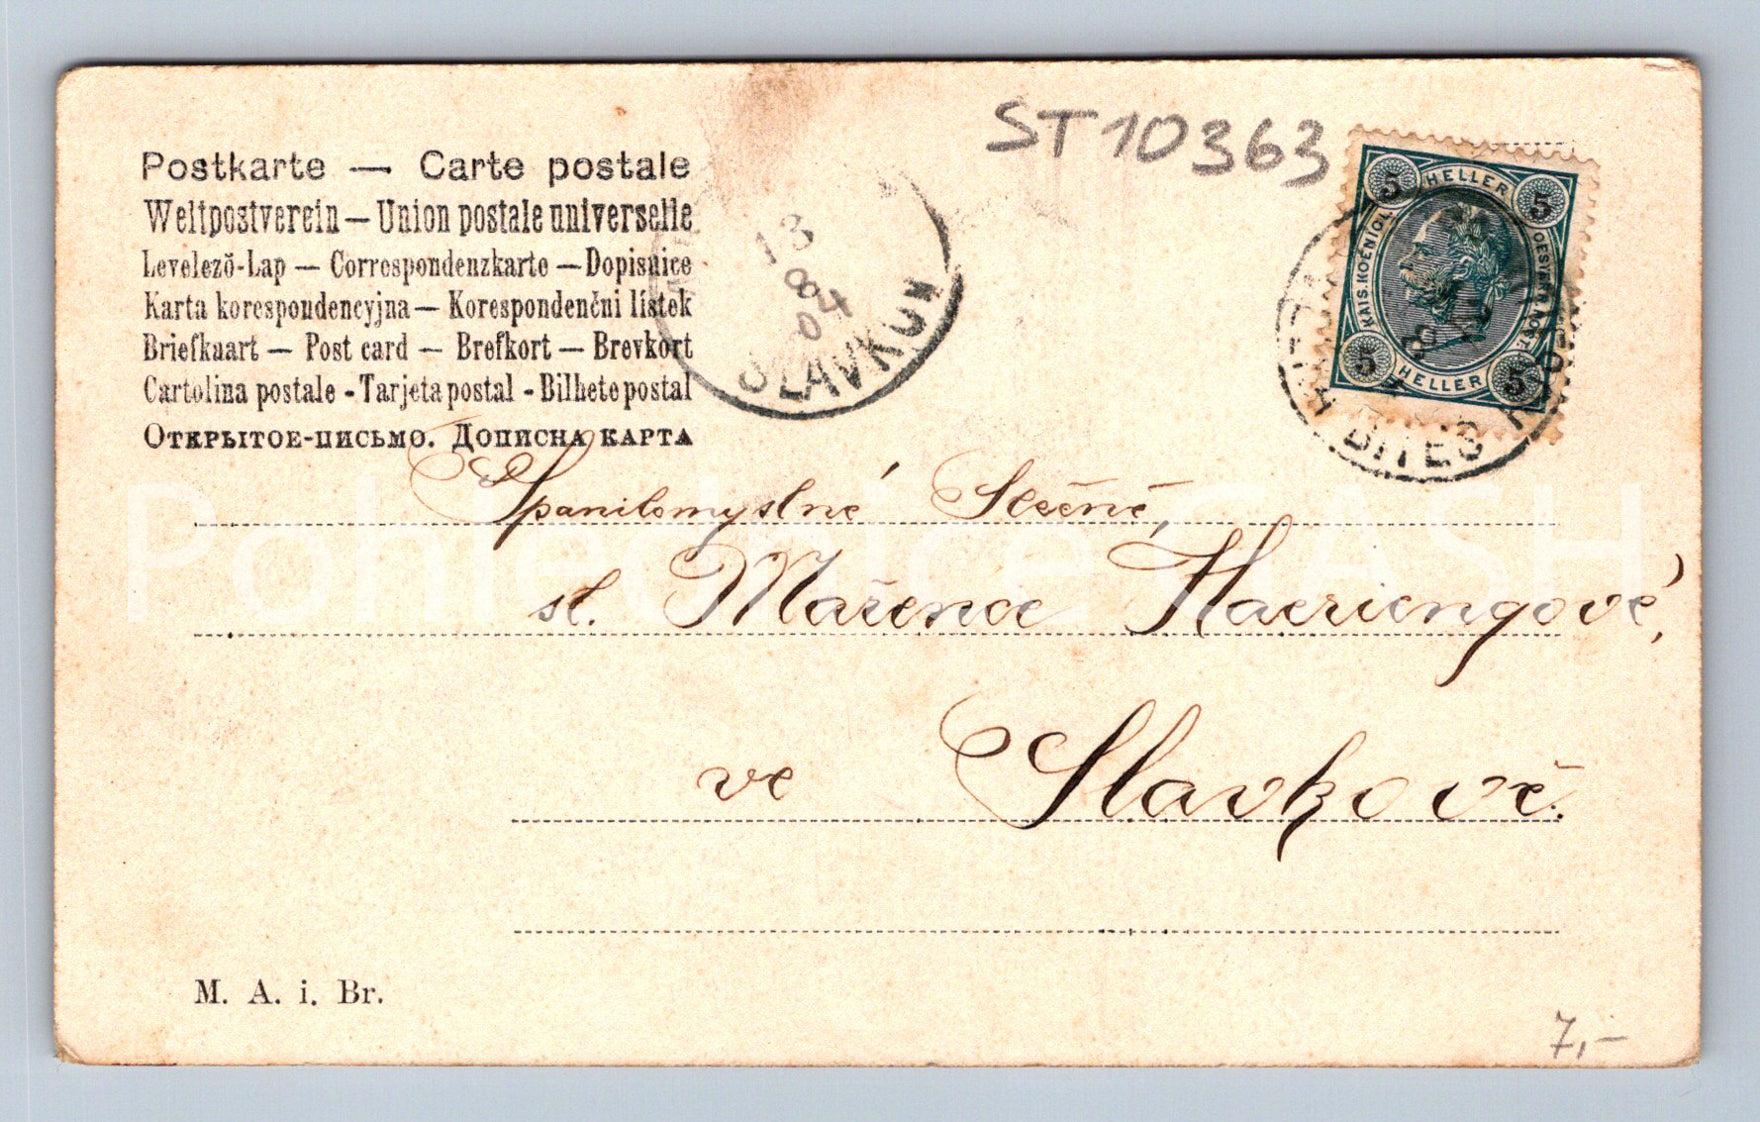 ST10363
Postkarte — Carte postale
Weltpostverein — Union postale universelle
Levelezõ-Lap — Correspondenzkarte — Dopisnice
Karta korespondencyjna — Korespondenčni lístek
Briefkaart — Post card — Brefkort — Brevkort
Cartolina postale - Tarjeta postal - Bilhete postal
Открытое-письмо. Дописна карта
13
8
04
SLAVKOV
5 HELLER 5
KAIS. KOENIGL.
5 HELLER 5
BITEŠ
Spanilomyslné Slečně,
sl. Mařence Haeringové,
ve Slavkově.
M. A. i. Br.
7,-
Pohlednice SASH